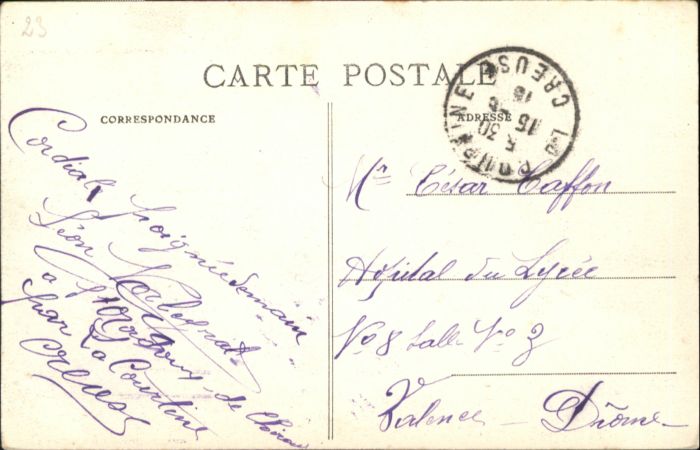 23
CARTE POSTALE
CORRESPONDANCE
ADRESSE
LA COURTINE
CREUSE
5 30
15
16
Cordiale poignée de main
Léon
à St Oradoux de Chirouze
par La Courtine
Creuse
Mr César Caffon
Hôpital du Lycée
No 8 Salle No 3
Valence - Drôme